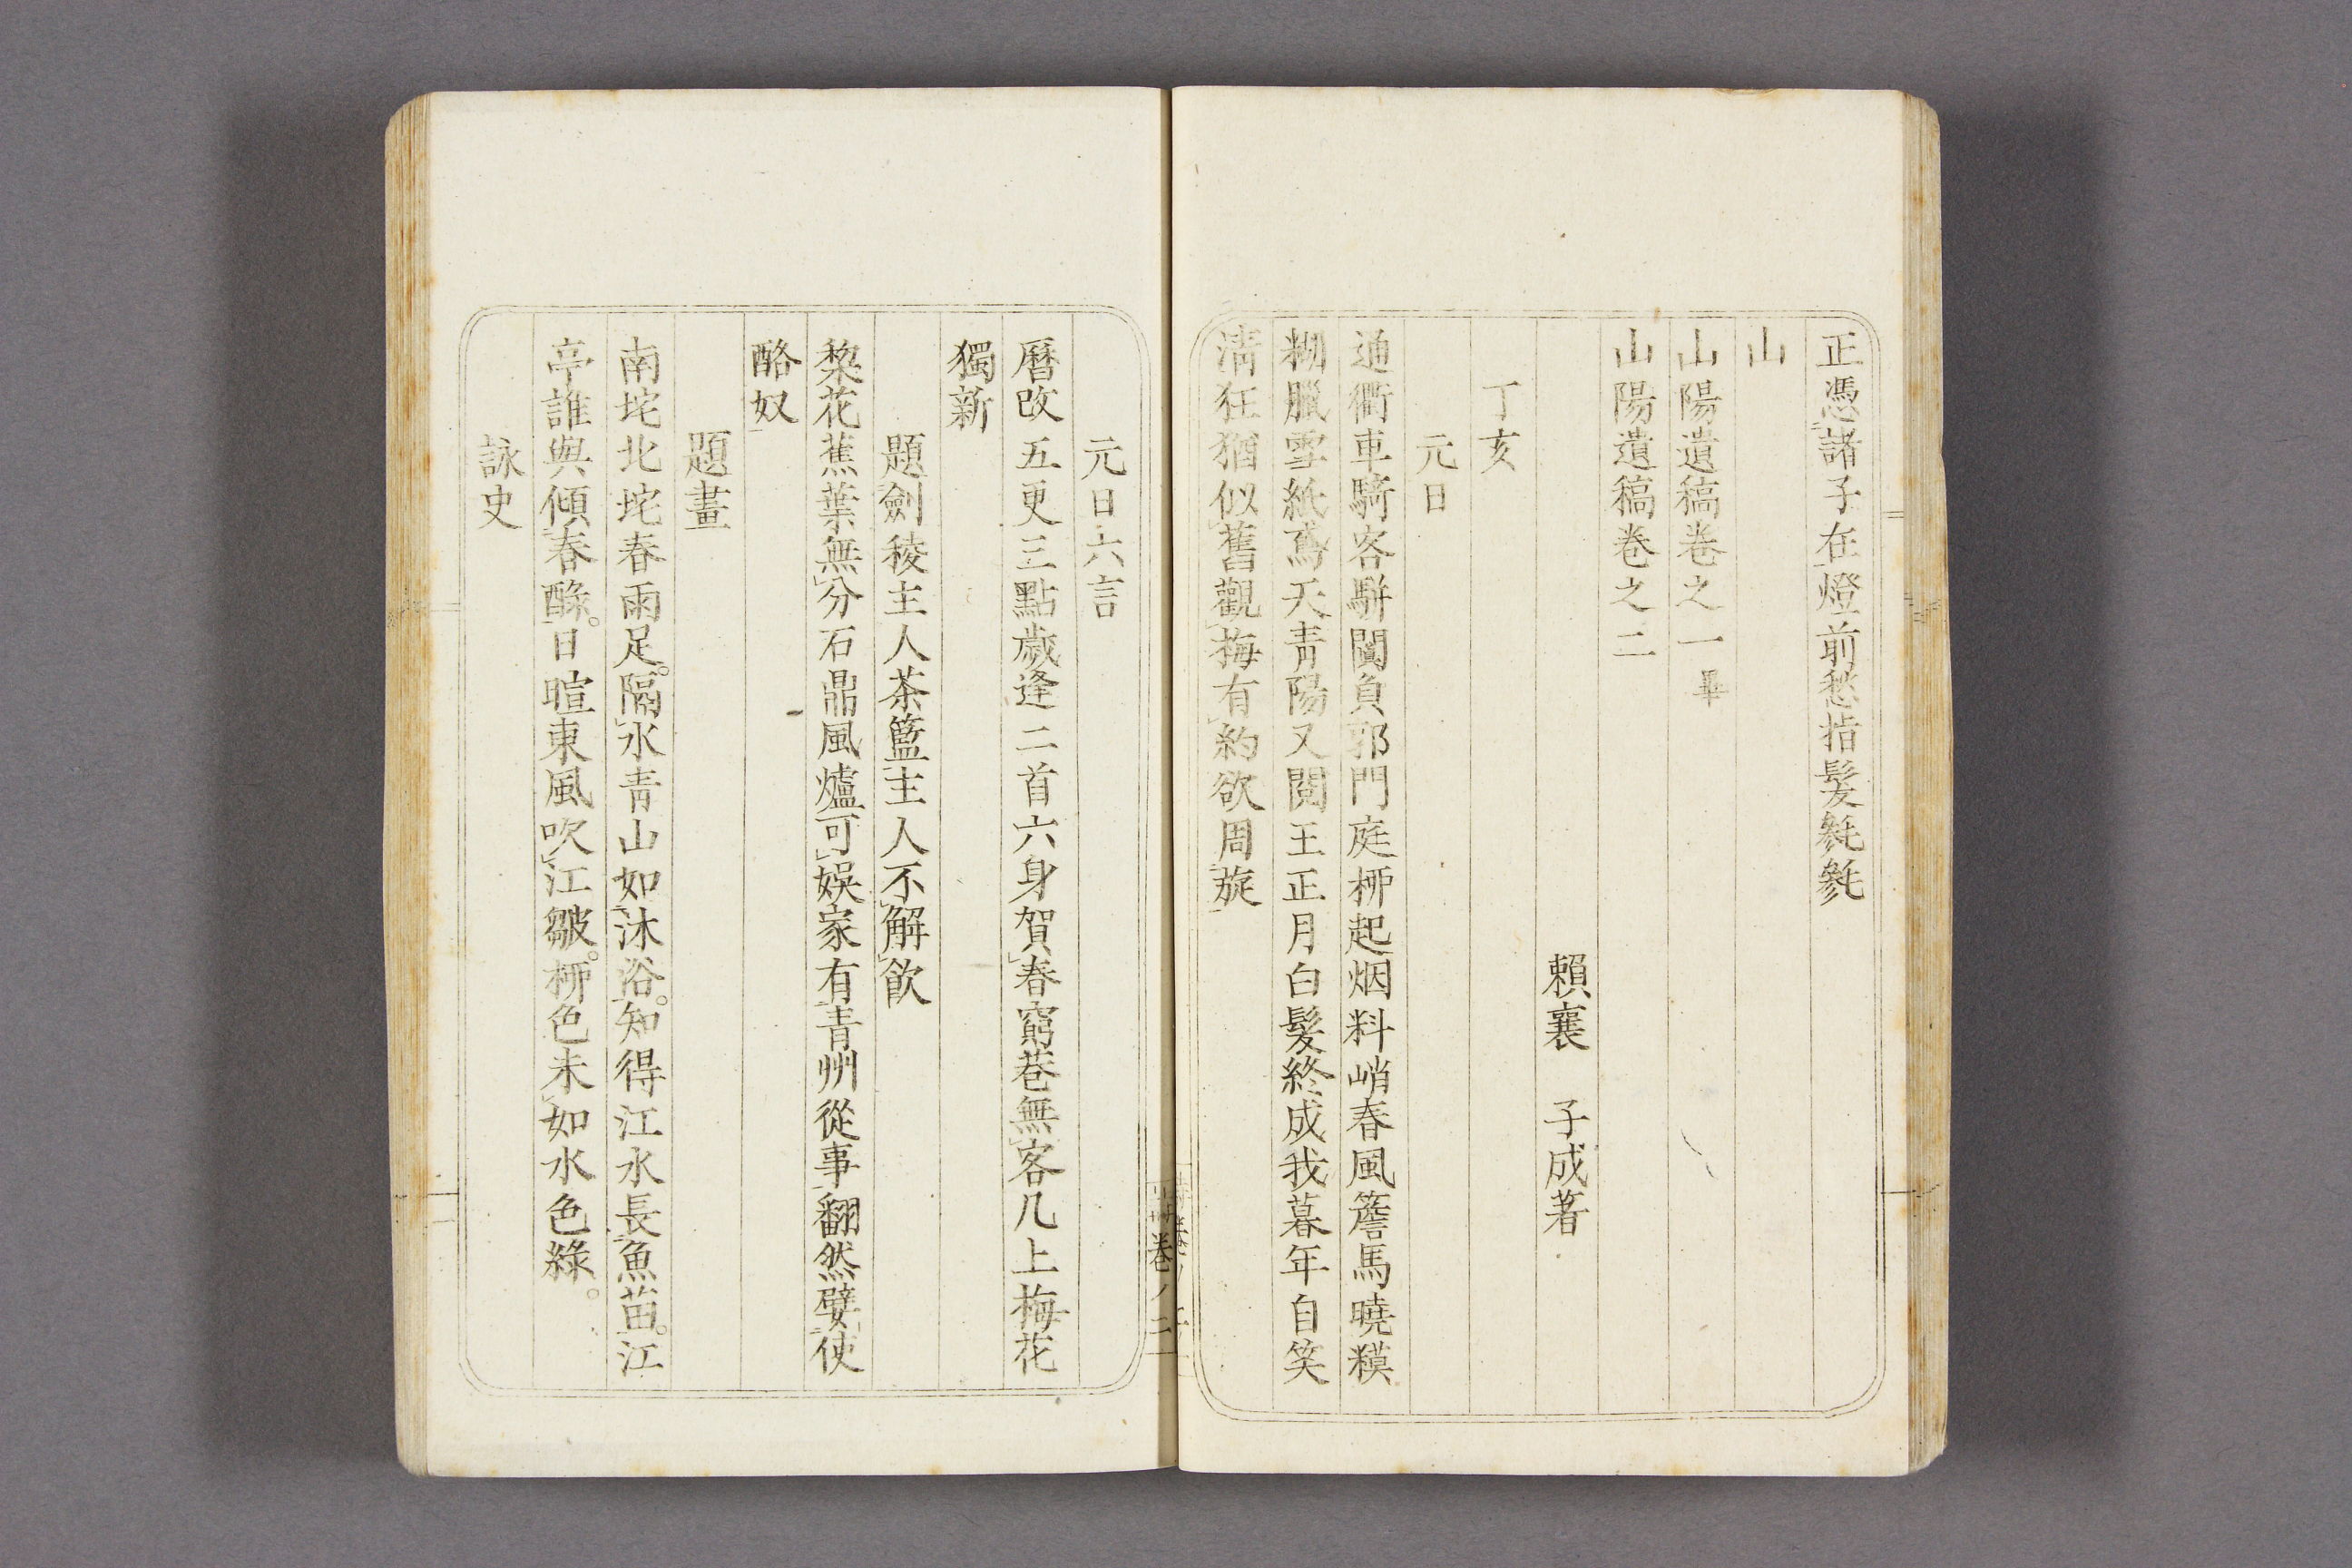 正憑諸子在燈前愁指髮毿毿
山
山陽遺稿卷之一畢
山陽遺稿卷之二
賴襄 子成著
丁亥
元日
通衢車騎客駢闐負郭門庭栁起烟料峭春風簷馬曉糢
糊臘雪紙鳶天青陽又閱王正月白髮終成我暮年自笑
淸狂猶似舊觀梅有約欲周旋
元日六言
曆改五更三點歲逢二首六身賀春窮巷無客几上梅花
獨新
題劍稜主人茶籃主人不解飮
棃花蕉葉無分石鼎風爐可娛家有青州從事翻然嬖使
酪奴
題畫
南垞北垞春雨足。隔水青山如沐浴。知得江水長魚苗。江
亭誰與傾春醁。日暄東風吹江皺。栁色未如水色綠。
詠史
卷ノ二